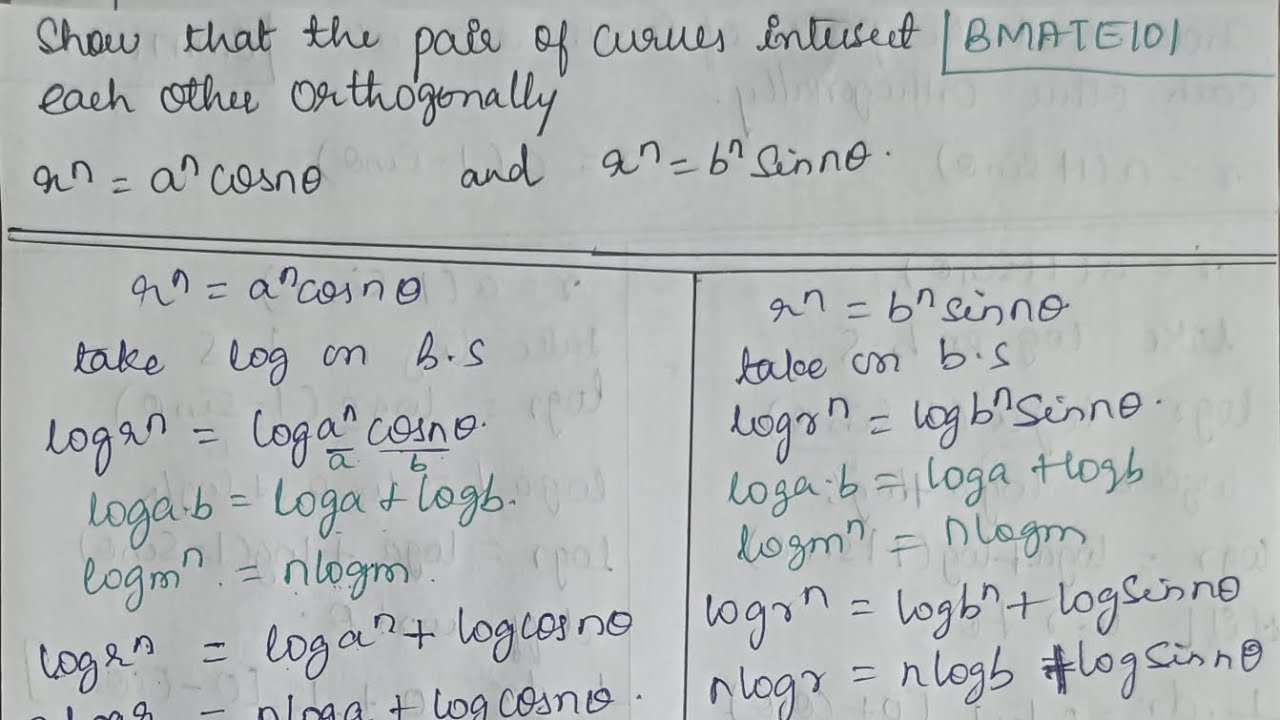 Show that the pair of curves intersect |BMATE101
each other orthogonally
rⁿ = aⁿ cosnθ and rⁿ = bⁿ Sinnθ.
rⁿ = aⁿcosnθ
take log on B.S
logrⁿ = logaⁿ cosnθ.
a b
loga.b = loga + logb.
logmⁿ = nlogm.
logrⁿ = logaⁿ + logcosnθ
nlogr = nloga + logcosnθ.
rⁿ = bⁿ sinnθ
take on b.s
logrⁿ = logbⁿSinnθ.
loga.b = loga + logb
logmⁿ = nlogm
logrⁿ = logbⁿ + logSinnθ
nlogr = nlogb + logSinnθ